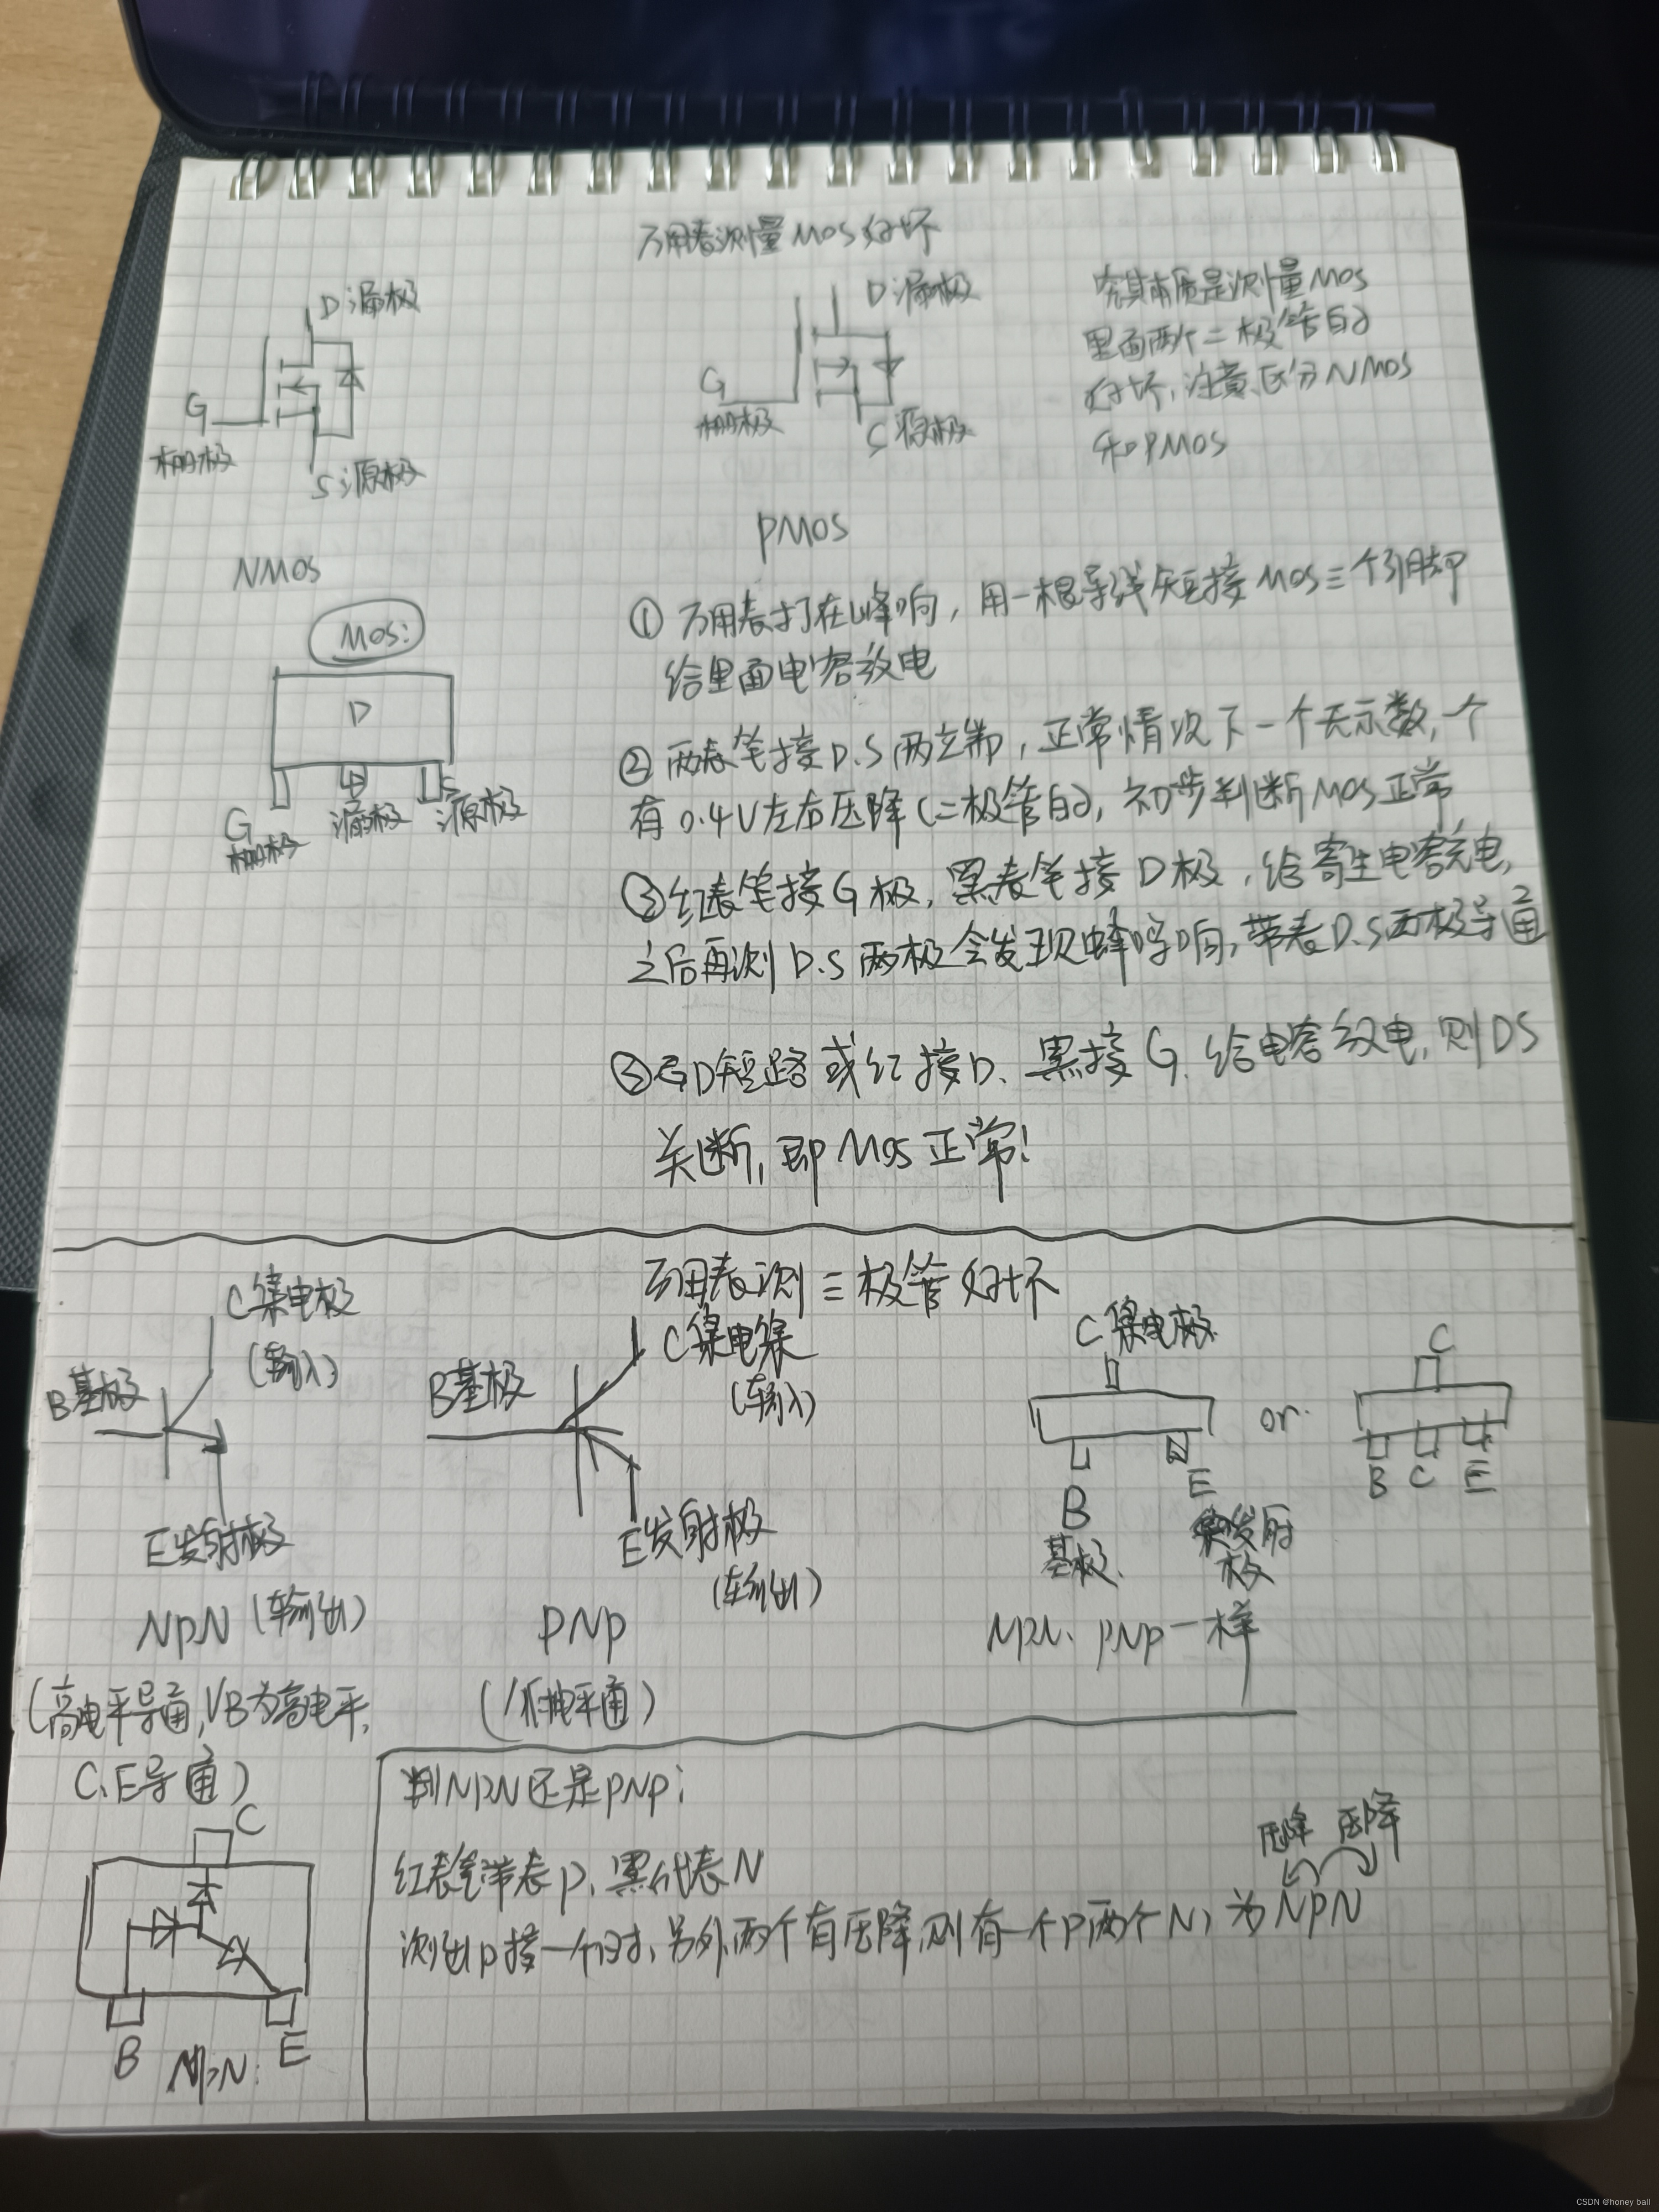 万用表测量MOS好坏
D漏极
G
栅极
S源极
NMOS
D漏极
G
栅极
S源极
PMOS
究其本质是测量MOS
里面两个二极管的
好坏,注意区分NMOS
和PMOS
MOS:
D
G
栅极
D
漏极
S
源极
① 万用表打在峰响,用一根导线短接MOS三个引脚
给里面电容放电
② 两表笔接D.S两端,正常情况下一个无示数,一个
有0.4V左右压降(二极管的),初步判断MOS正常
③ 红表笔接G极,黑表笔接D极,给寄生电容充电,
之后再测D.S两极会发现蜂鸣响,带表D.S两极导通
③GD短路或红接D、黑接G.给电容放电,则DS
关断,即MOS正常!
万用表测三极管好坏
C集电极
(输入)
B基极
E发射极
(输出)
NPN
(高电平导通,VB为高电平,
C、E导通)
C集电集
(输入)
B基极
E发射极
(输出)
PNP
(低电平通)
C集电极
B
基极
E
发射
极
or
C
B C E
NPN、PNP一样
C
B
E
NPN:
判NPN还是PNP:
红表笔带表P、黑代表N
测出P接一个时、另外两个有压降,则有一个P两个N,为NPN
压降 压降
CSDN @honey ball